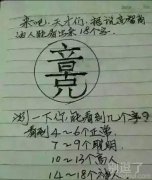 来吧,天才们,据说高智商
的人能看出来18个字.
竟
测一下你,能看到几个字?
看到 4~6个正常
7~9个聪明
10~13个高人
14~18个神人